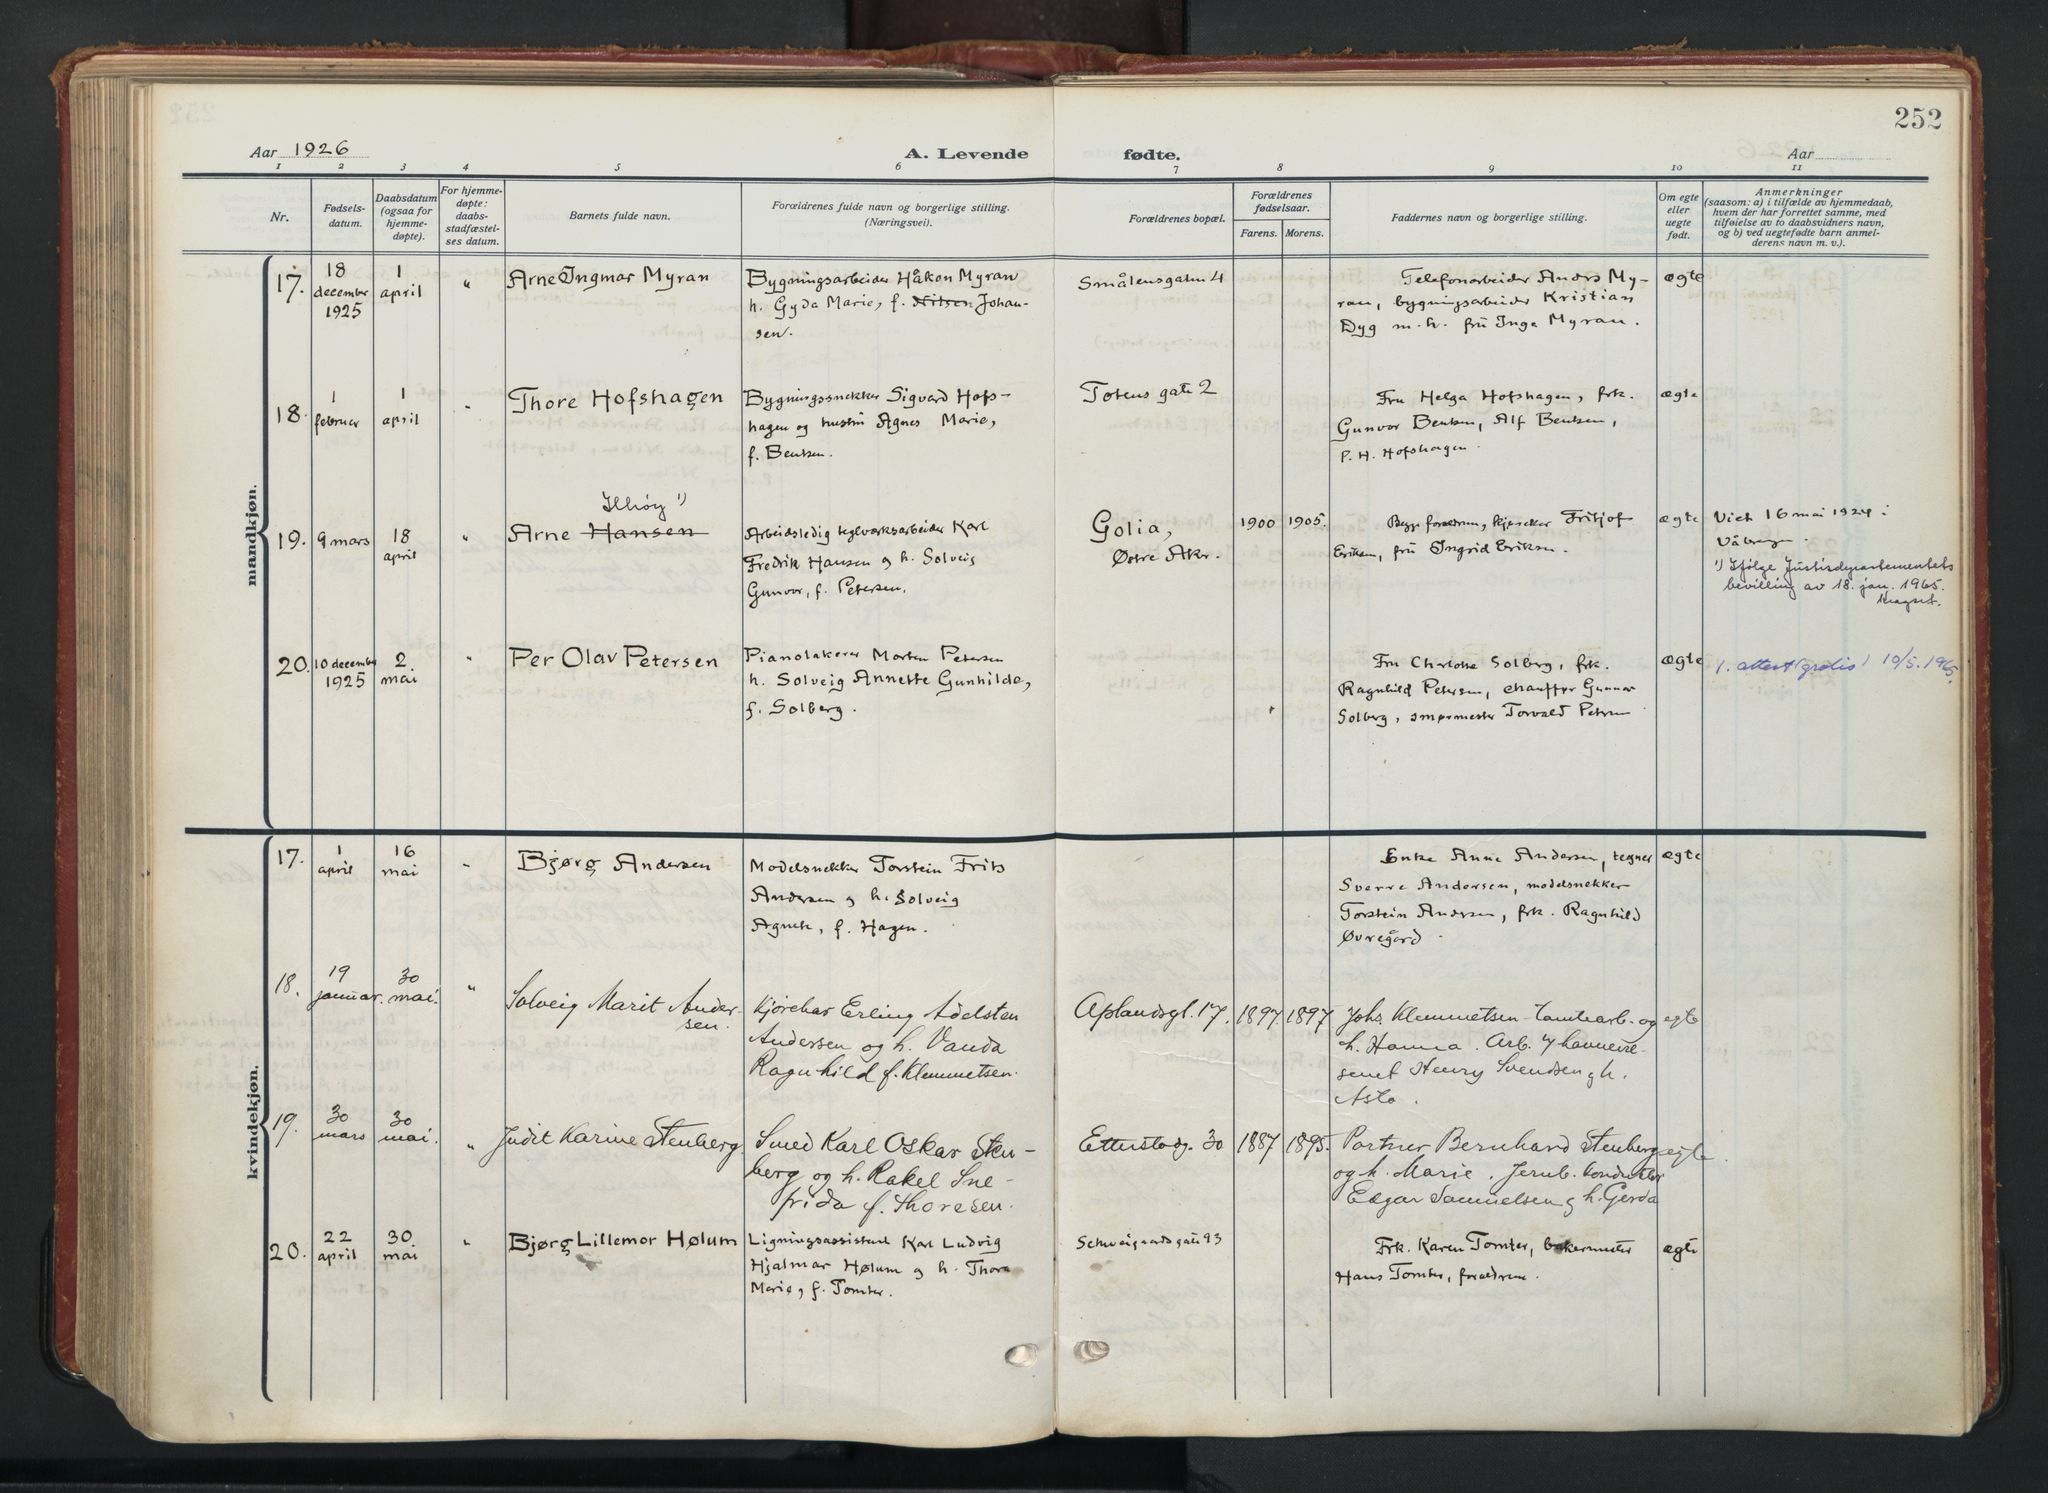 252
Aar 1926 A. Levende fødte. Aar
1 2 3 4 5 6 7 8 9 10 11
Nr.
Fødsels-
datum.
Daabsdatum
(ogsaa for
hjemme-
døpte).
For hjemme-
døpte:
daabs-
stadfæstel-
ses datum.
Barnets fulde navn.
Forældrenes fulde navn og borgerlige stilling.
(Næringsvei).
Forældrenes bopæl.
Forældrenes
fødselsaar.
Farens. Morens.
Faddernes navn og borgerlige stilling.
Om egte
eller
uegte
født.
Anmerkninger
(saasom: a) i tilfælde av hjemmedaab,
hvem der har forrettet samme, med
tilføielse av to daabsvidners navn,
og b) ved uegtefødte barn anmel-
derens navn m. v.).
mandkjøn.
17.
18
december
1925
1
april
"
Arne Ingmar Myran
Bygningsarbeider Håkon Myran
h. Gyda Marie, f. Nilsen Johan-
sen.
Smålensgaten 4
Telefonarbeider Anders My-
ran, bygningsarbeider Kristian
Dyg m. h. fru Inga Myran.
ægte
18.
1
februar
1
april
"
Thore Hofshagen
Bygningssnekker Sigvard Hofs-
hagen og hustru Agnes Marie,
f. Bentsen.
Totens gate 2
Fru Helga Hofshagen, frk.
Gunvor Bentsen, Alf Bentsen,
P. H. Hofshagen.
ægte
19.
9 mars
18
april
"
Illhøiy 1)
Arne Hansen
Arbeidsledig teglverksarbeider Karl
Fredrik Hansen og h. Solveig
Gunvor, f. Petersen.
Golia,
Østre Aker.
1900 1905.
Begge forældrene, Fritjof
Eriksen, fru Ingrid Eriksen.
ægte
Viet 16 mai 1924 i
Våleengen.
1) Ifølge Justisdepartementets
bevilling av 18. jan. 1965.
20.
10 december
1925
2.
mai
"
Per Olav Petersen
Pianolakerer Morten Petersen
h. Solveig Annette Gunhilde,
f. Solberg.
Fru Charlotte Solberg, frk.
Ragnhild Petersen, chauffør Gunnar
Solberg, smørmester Torvald Petersen
ægte
1. attest (gratis) 10/5. 1965.
kvindekjøn.
17.
1
april
16
mai
"
Bjørg Andersen
Modelsnekker Torstein Frits
Andersen og h. Solveig
Agnete, f. Hagen.
Enke Anne Andersen, tegner
Sverre Andersen, modelsnekker
Torstein Andersen, frk. Ragnhild
Øvregård.
ægte
18.
19
januar.
30
mai.
"
Solveig Marit Ander-
sen.
Kjørekar Erling Adelsten
Andersen og h. Vanda
Ragnhild f. Klemmetsen.
Oplandsgt. 17.
1897. 1897
Johs. Klemmetsen Tomtearb. og
h. Hanna. Arb. v/havnevæ-
senet Henry Svendsen og h.
Asta.
egte
19.
30
mars
30
mai.
"
Judit Karine Stenberg.
Smed Karl Oskar Sten-
berg og h. Rakel Sne-
frida f. Thoresen.
Etterstadg. 30
1887 1895.
Portner Bernhard Stenberg
og h. Marie. Jernb. konduktør
Edgar Samuelsen og h. Gerda
egte
20.
22
april
30
mai
"
Bjørg Lillemor Hølum
Ligningsassistent Karl Ludvig
Hjalmar Hølum og h. Thora
Marie, f. Tomter.
Schweigaardsgate 93
Frk. Karen Tomter, bakermester
Hans Tomter, forældrene.
ægte